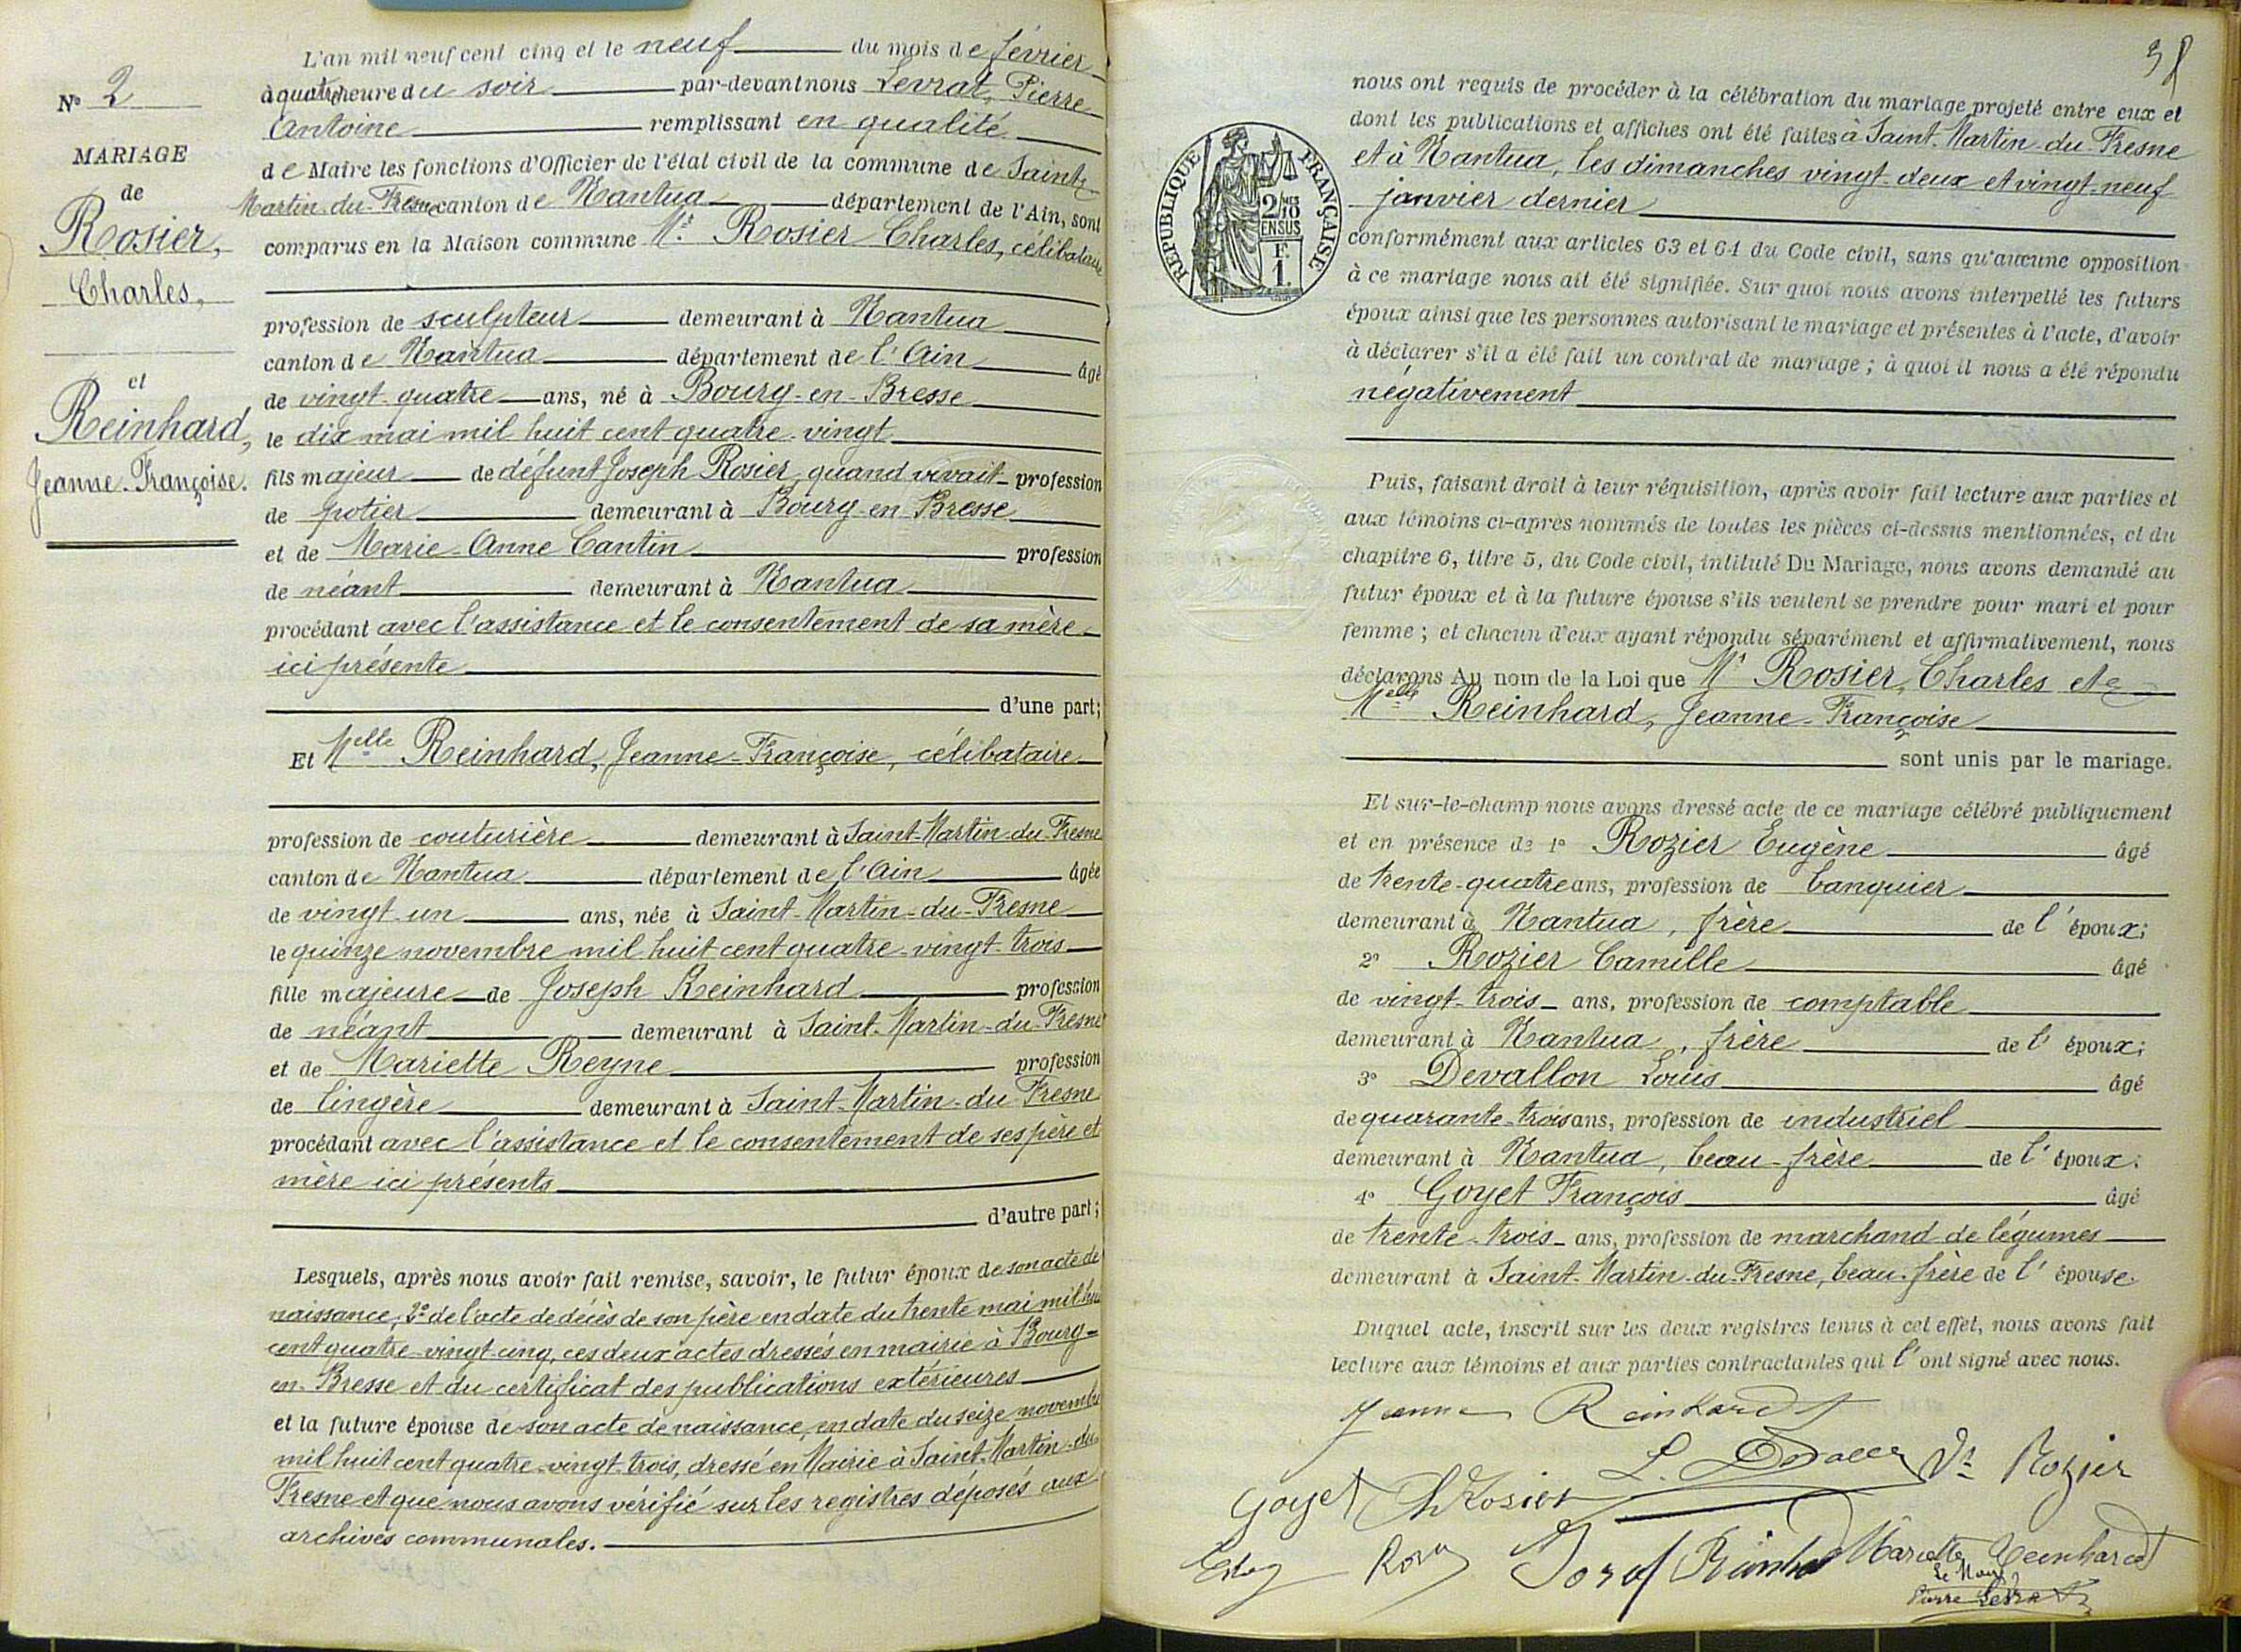 L'an mil neuf cent cinq et le neuf du mois de février
à quatre heure du soir par-devant nous Levrat, Pierre
Antoine remplissant en qualité
de Maire les fonctions d'Officier de l'état civil de la commune de Saint-
Martin-du-Fresne canton de Nantua département de l'Ain, sont
comparus en la Maison commune Mr Rosier Charles, célibataire
profession de sculpteur demeurant à Nantua
canton de Nantua département de l'Ain âgé
de vingt-quatre ans, né à Bourg-en-Bresse
le dix mai mil huit cent quatre-vingt
fils majeur de défunt Joseph Rosier, quand vivait profession
de potier demeurant à Bourg-en-Bresse
et de Marie-Anne Cantin profession
de néant demeurant à Nantua
procédant avec l'assistance et le consentement de sa mère
ici présente
d'une part;
Et Melle Reinhard, Jeanne-Françoise, célibataire
profession de couturière demeurant à Saint-Martin-du-Fresne
canton de Nantua département de l'Ain âgée
de vingt-un ans, née à Saint-Martin-du-Fresne
le quinze novembre mil huit cent quatre-vingt-trois
fille majeure de Joseph Reinhard profession
de néant demeurant à Saint-Martin-du-Fresne
et de Mariette Reyne profession
de lingère demeurant à Saint-Martin-du-Fresne
procédant avec l'assistance et le consentement de ses père et
mère ici présents
d'autre part;
Lesquels, après nous avoir fait remise, savoir, le futur époux de son acte de
naissance, 2° de l'acte de décès de son père en date du trente mai mil huit
cent quatre-vingt-cinq, ces deux actes dressés en mairie à Bourg-
en-Bresse et du certificat des publications extérieures
et la future épouse de son acte de naissance, en date du seize novembre
mil huit cent quatre-vingt-trois, dressé en Mairie à Saint-Martin-du-
Fresne et que nous avons vérifié sur les registres déposés aux
archives communales.
N° 2
MARIAGE
de
Rosier,
Charles,
et
Reinhard,
Jeanne-Françoise.
38
RÉPUBLIQUE FRANÇAISE
2/10 MES
EN SUS
F.
1.
nous ont requis de procéder à la célébration du mariage projeté entre eux et
dont les publications et affiches ont été faites à Saint-Martin-du-Fresne
et à Nantua, les dimanches vingt-deux et vingt-neuf
janvier dernier
conformément aux articles 63 et 64 du Code civil, sans qu'aucune opposition
à ce mariage nous ait été signifiée. Sur quoi nous avons interpellé les futurs
époux ainsi que les personnes autorisant le mariage et présentes à l'acte, d'avoir
à déclarer s'il a été fait un contrat de mariage ; à quoi il nous a été répondu
négativement
Puis, faisant droit à leur réquisition, après avoir fait lecture aux parties et
aux témoins ci-après nommés de toutes les pièces ci-dessus mentionnées, et du
chapitre 6, titre 5, du Code civil, intitulé Du Mariage, nous avons demandé au
futur époux et à la future épouse s'ils veulent se prendre pour mari et pour
femme ; et chacun d'eux ayant répondu séparément et affirmativement, nous
déclarons Au nom de la Loi que Mr Rosier, Charles et
Melle Reinhard, Jeanne-Françoise
sont unis par le mariage.
Et sur-le-champ nous avons dressé acte de ce mariage célébré publiquement
et en présence de 1° Rozier Eugène âgé
de trente-quatre ans, profession de banquier
demeurant à Nantua, frère de l'époux;
2° Rozier Camille âgé
de vingt-trois ans, profession de comptable
demeurant à Nantua, frère de l'époux;
3° Devallon Louis âgé
de quarante-trois ans, profession de industriel
demeurant à Nantua, beau-frère de l'époux.
4° Goyet François âgé
de trente-trois ans, profession de marchand de légumes
demeurant à Saint-Martin-du-Fresne, beau-frère de l'épouse.
Duquel acte, inscrit sur les deux registres tenus à cet effet, nous avons fait
lecture aux témoins et aux parties contractantes qui l'ont signé avec nous.
Jeanne Reinhardt
L. Vve Rozier
Goyet Ch Rosier
Josef Mariette Reinhardt
Le Maire
Pierre Levrat